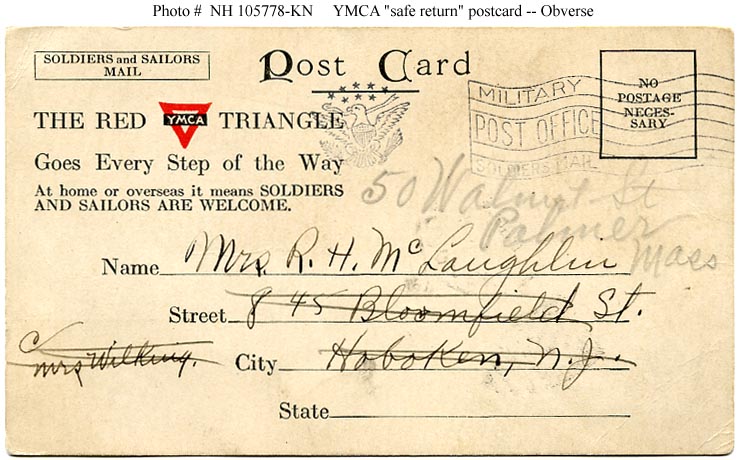 Photo # NH 105778-KN YMCA "safe return" postcard -- Obverse
SOLDIERS and SAILORS
MAIL
Post Card
MILITARY
POST OFFICE
SOLDIERS MAIL
NO
POSTAGE
NECES-
SARY
THE RED YMCA TRIANGLE
Goes Every Step of the Way
At home or overseas it means SOLDIERS
AND SAILORS ARE WELCOME.
50 Walnut St
Palmer
Mass
Name Mrs. R. H. McLaughlin
Street 845 Bloomfield St.
Mrs Wilking.
City Hoboken, N.J.
State